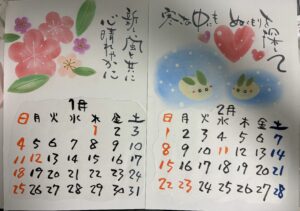 新しい風と共に
心晴れやかに
1月
日 月 火 水 木 金 土
1 2 3
4 5 6 7 8 9 10
11 12 13 14 15 16 17
18 19 20 21 22 23 24
25 26 27 28 29 30 31
ぬくもりを
探して
2月
日 月 火 水 木 金 土
1 2 3 4 5 6 7
8 9 10 11 12 13 14
15 16 17 18 19 20 21
22 23 24 25 26 27 28